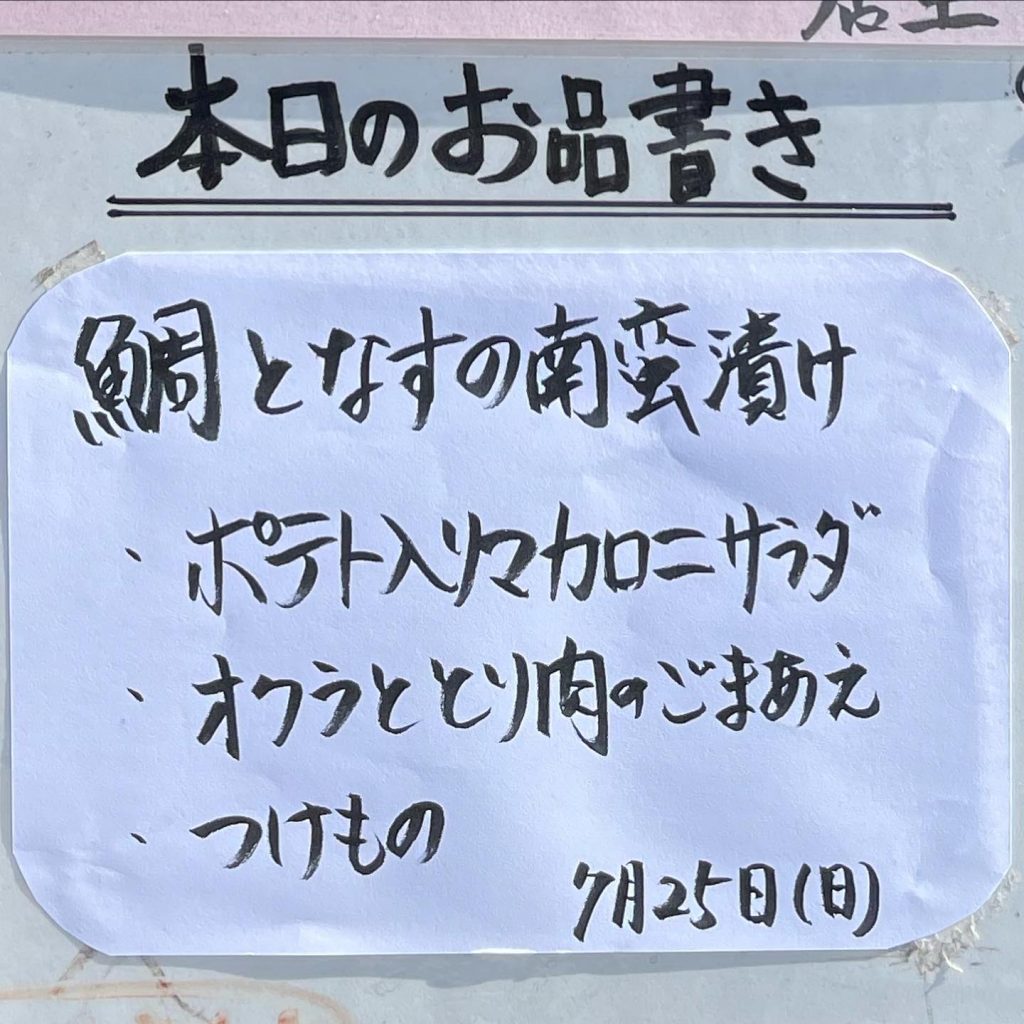 店主
本日のお品書き
鯛となすの南蛮漬け
・ポテト入りマカロニサラダ
・オクラととり肉のごまあえ
・つけもの
7月25日(日)